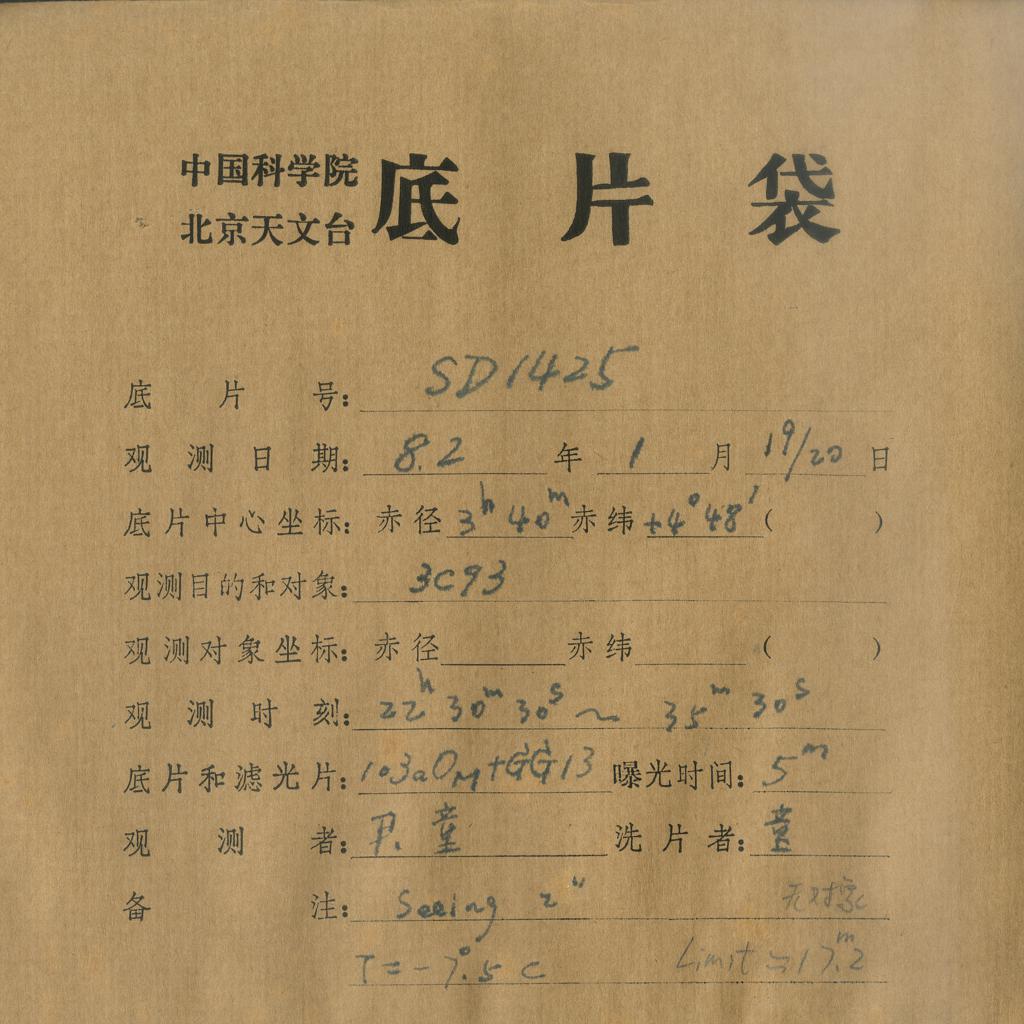 中国科学院
北京天文台
底片袋
底片号: SD1425
观测日期: 8.2年1月19/20日
底片中心坐标: 赤径 3h 40m 赤纬 +4°48′ ( )
观测目的和对象: 3C93
观测对象坐标: 赤径 赤纬 ( )
观测时刻: 22h 30m 30s ~ 35m 30s
底片和滤光片: 103aOM+GG13 曝光时间: 5m
观测者: 尹、童 洗片者: 童
备注: Seeing 2″
T=-7°.5 C Limit≃17m.2